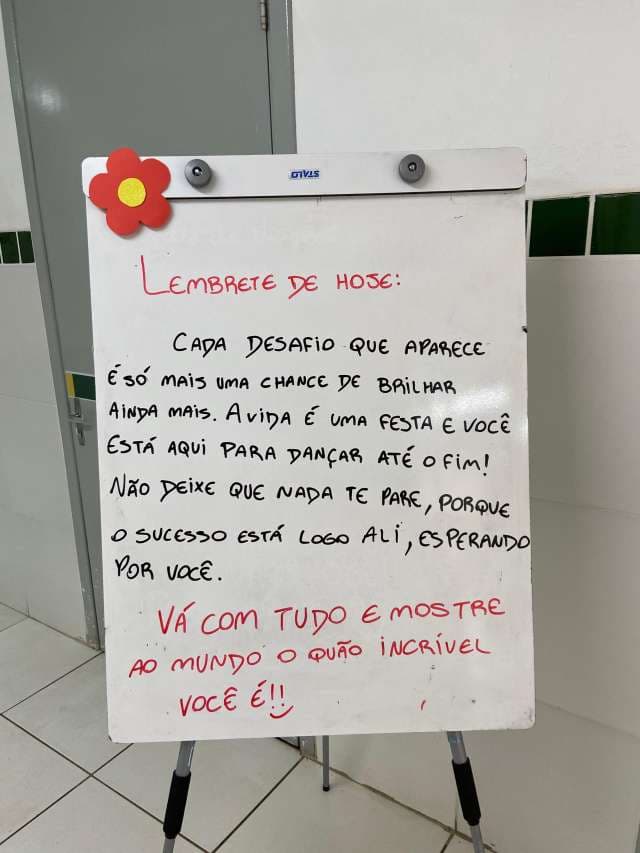 STALO
LEMBRETE DE HOJE:
CADA DESAFIO QUE APARECE
É SÓ MAIS UMA CHANCE DE BRILHAR
AINDA MAIS. A VIDA É UMA FESTA E VOCÊ
ESTÁ AQUI PARA DANÇAR ATÉ O FIM!
NÃO DEIXE QUE NADA TE PARE, PORQUE
O SUCESSO ESTÁ LOGO ALI, ESPERANDO
POR VOCÊ.
VÁ COM TUDO E MOSTRE
AO MUNDO O QUÃO INCRÍVEL
VOCÊ É!!